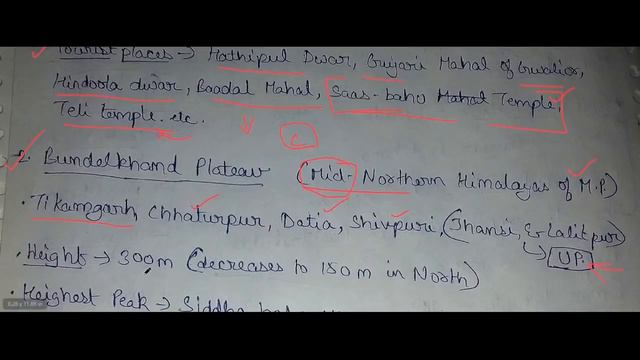 Tourist places → Hathipul Dwar, Gujari Mahal of Gwalior,
Hindoola dwar, Baadal Mahal, Saas-bahu Mahal Temple,
Teli temple. etc.
2. Bundelkhand Plateau (Mid- Northern Himalayas of M.P)
• Tikamgarh, Chhaturpur, Datia, Shivpuri, (Jhansi, & Lalitpur)
UP.
• Height → 300m (decreases to 150 m in North)
• Heighest Peak → Siddha